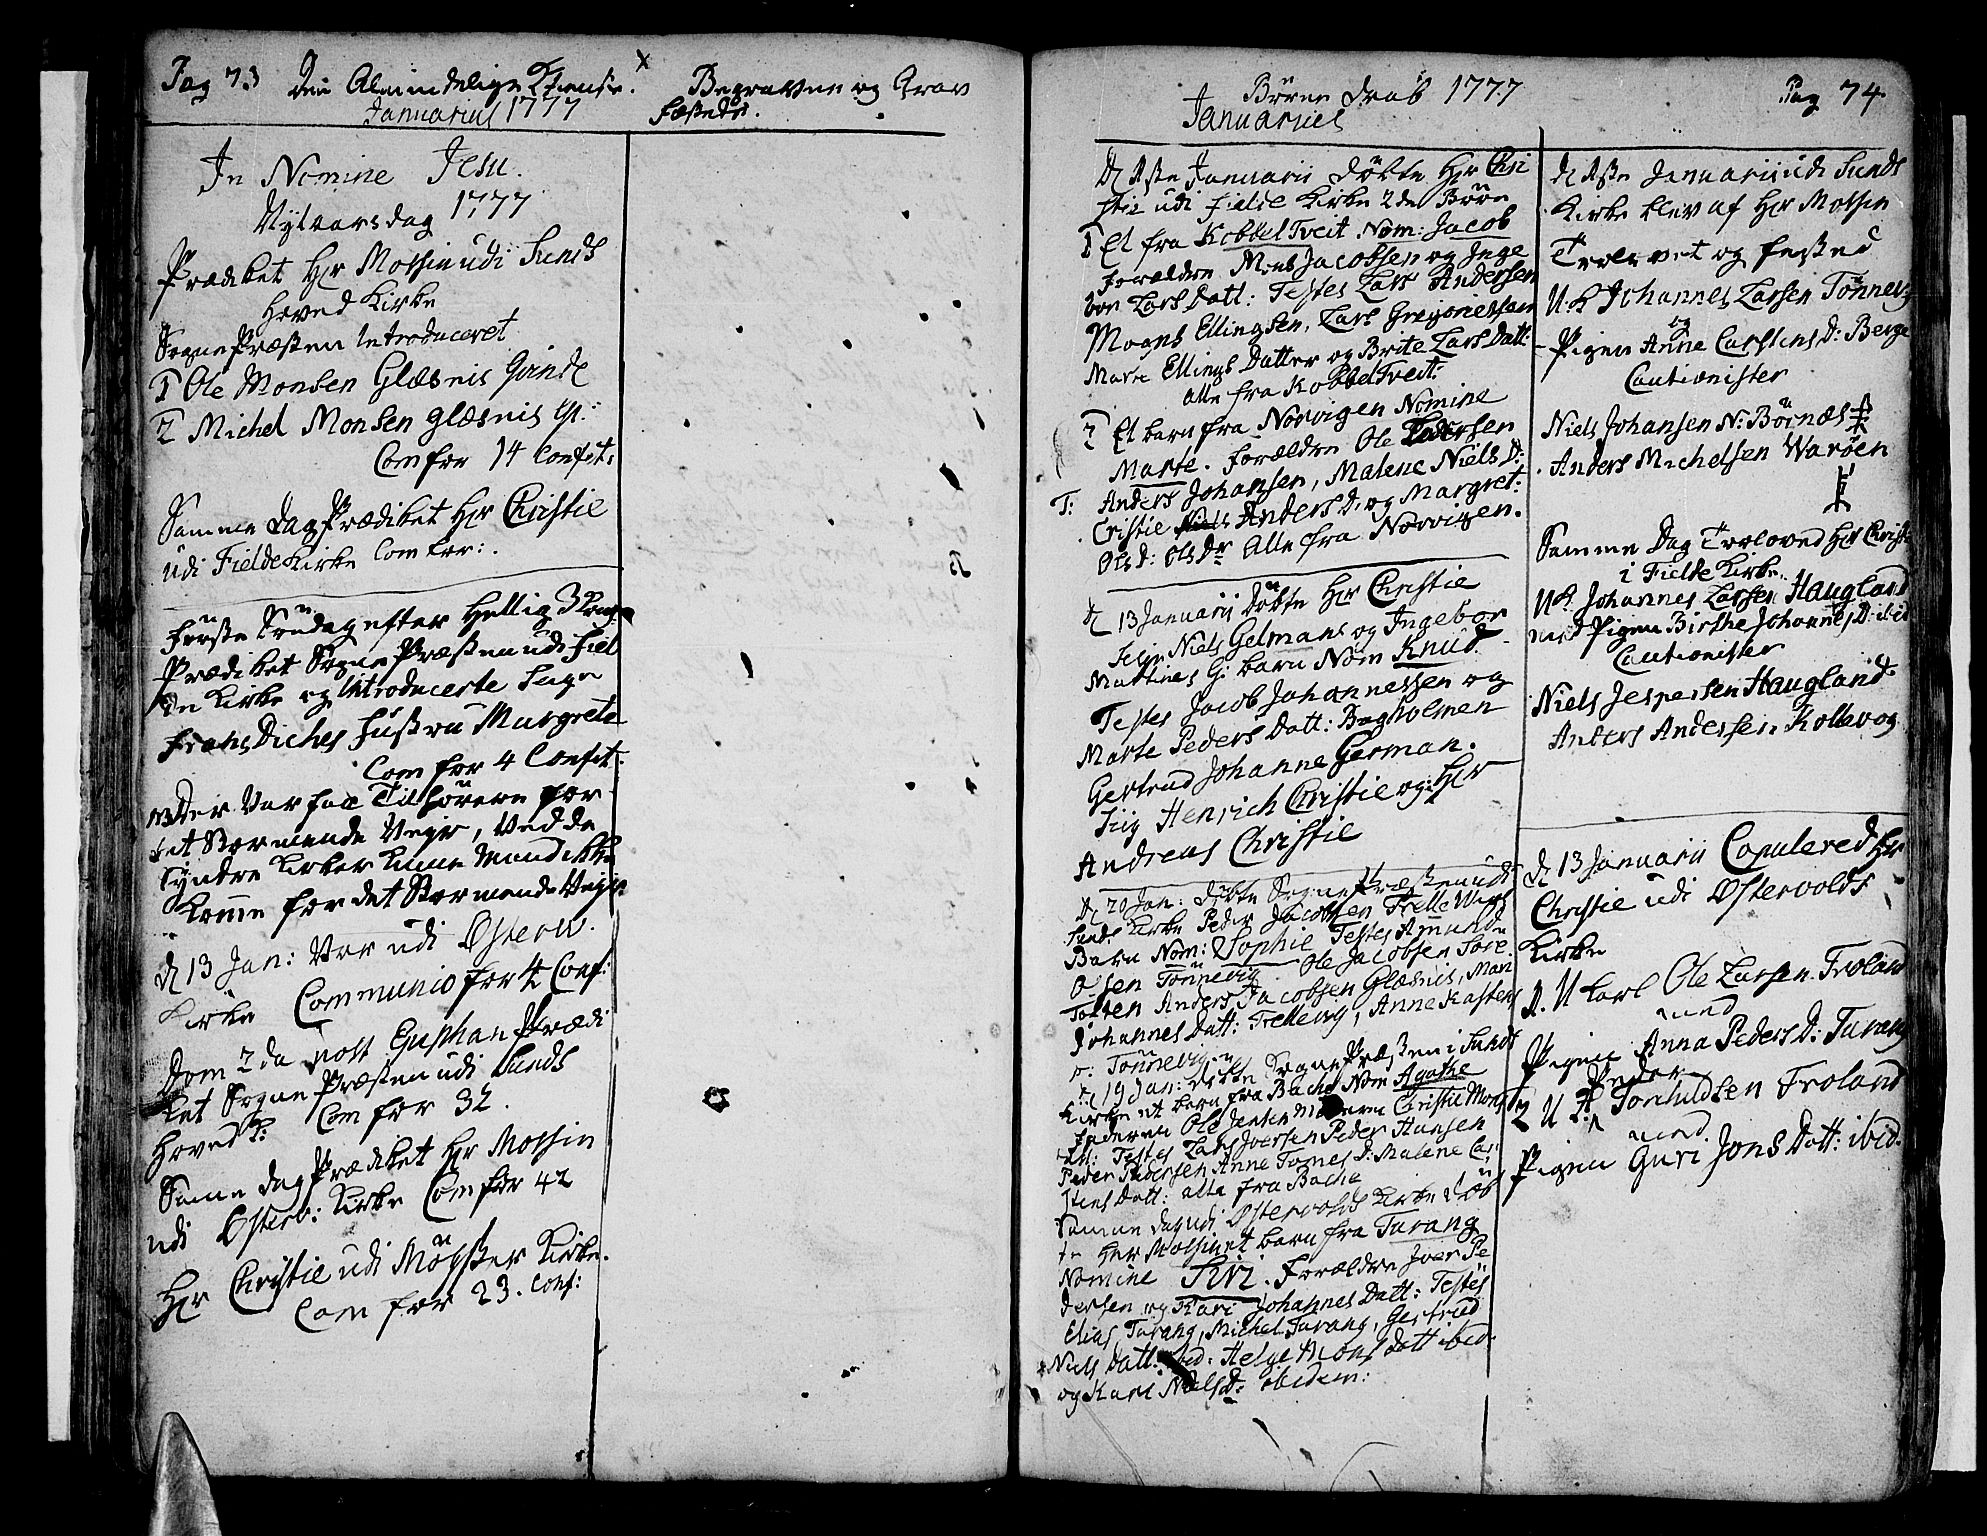 Pag 73 Den Almindelige Tieniste.
Januarius 1777
Begravne og Grav
fæstede.
In Nomine Jesu.
Nytaarsdag 1777
Prædiket Hr Mossin udi Sunds
Hoved Kirke
SognePræsten Introduceret
1 Ole Monsen Glæsnis
2 Michel Monsen Glæsnis
Com for 14 Confit:
Samme dag Prædiket Hr Christie
udi Fielde Kirke Com for:.
Første Søndag efter Hellig 3 Kong:
Prædiket Sogne Præsten udi Fiel
de Kirke og Introducerte
Frans Diches Hustru Margrete
Com for 4 Confit:
Der Var faa Tilhørere for
det Stormende Vejr, Ved de
Syndre Kirker kunne Mand ikke
komme for det Stormende Vejr.
d 13 Jan: Var udi Østerv.
Kirke Communio for 4 Conf:
Dom 2da post Epiphan Prædi
ket Sogne Præsten udi Sunds
Hoved K: Com for 32.
Samme dag Prædiket Hr Mossin
udi Østerv: Kirke Com for 42
Hr Christie udi Møgster Kirke.
Com for 23. Conf:
Børne Daab 1777
Januarius
Pag 74.
Januarii døbte Hr Chri
stie udi Fielde Kirke 2de Børn
1 Et fra KobbelTveit Nom: Jacob
Forældre Mons Jacobsen og Inge
bor Lars Datt: Testes Lars Andersen
Mogns Ellingsen, Lars Gregoriessen
Mari Ellings Datter og Brite Lars Datt:
alle fra KobbelTveit:
2 Et barn fra Norvigen Nomine
Marte. Forældre Ole Pedersen
T: Anders Johansen, Malene Niels D:
Cristie Anders D: og Margret:
Ols D: Ols Dr alle fra Norvigen.
d 13 Januarii døbte Hr Christie
Niels Gelmans og Ingebor
Mattines G: barn Nom Knud
Testes Jacob Johannessen og
Marte Peders Datt: Bagholmen
Gertrud Johanne German.
Henrich Christie og Hr
Andreas Christie
d 20 Jan: døbte Sogne Præsten udi
Sunds Kirke Peder Jacobsen TrelleVigs
Barn Nom: Sophie Testes Amund
Olsen Tønnevig Ole Jacobsen Tore
Anders Jacobsen Glæsnis, Mari
Johannes Datt: Trellevig, Anne Kastens
D: Tønnevig
d 19 Jan: døbte Sogne Præsten i Sunds
Kirke et barn fra Bache Nom Agathe
Faderen Ole Jensen Moderen Christie Mons
Dat: Testes Lars Joersen Peder Hansen
Peder Pedersen Anne Tomes D: Malene Car
stens Datt: alle fra Bache
Samme dag udi Østervolds Kirke døb
te Her Mossin et barn fra Turang
Nomine Siri. Forældre Joer Pe
dersen og Kari Johannes Datt: Testes
Elias Turang, Michel Turang, Gertrud
Niels Datt: ibid: Helge Mons Datt ibid:
og Kari Niels D: ibidem:
Januarii udi Sunds
Kirke blev af Hr Mossin
Trolovet og fæsted
U.K Johannes Larsen Tønnevig
og
Pigen Anne Carstens D: Berge
Cautionister
Niels Johansen N: Børnæs
Anders Michelsen Warøen
Samme Dag Troloved Hr Christie
i Fielde Kirke
UK. Johannes Larsen Haugland
med Pigen Birthe Johannes D: ibid
Cautionister
Niels Jespersen Haugland
Anders Andersen Kollevog
d 13 Januarii Copulered Hr
Christie udi Østervolds
Kirke
1. U Karl Ole Larsen Froland
med
Pigen Anna Peders D: Turang
Peder
2 U K: Torchildsen Froland
med
Pigen Guri Jons Datt: ibid.